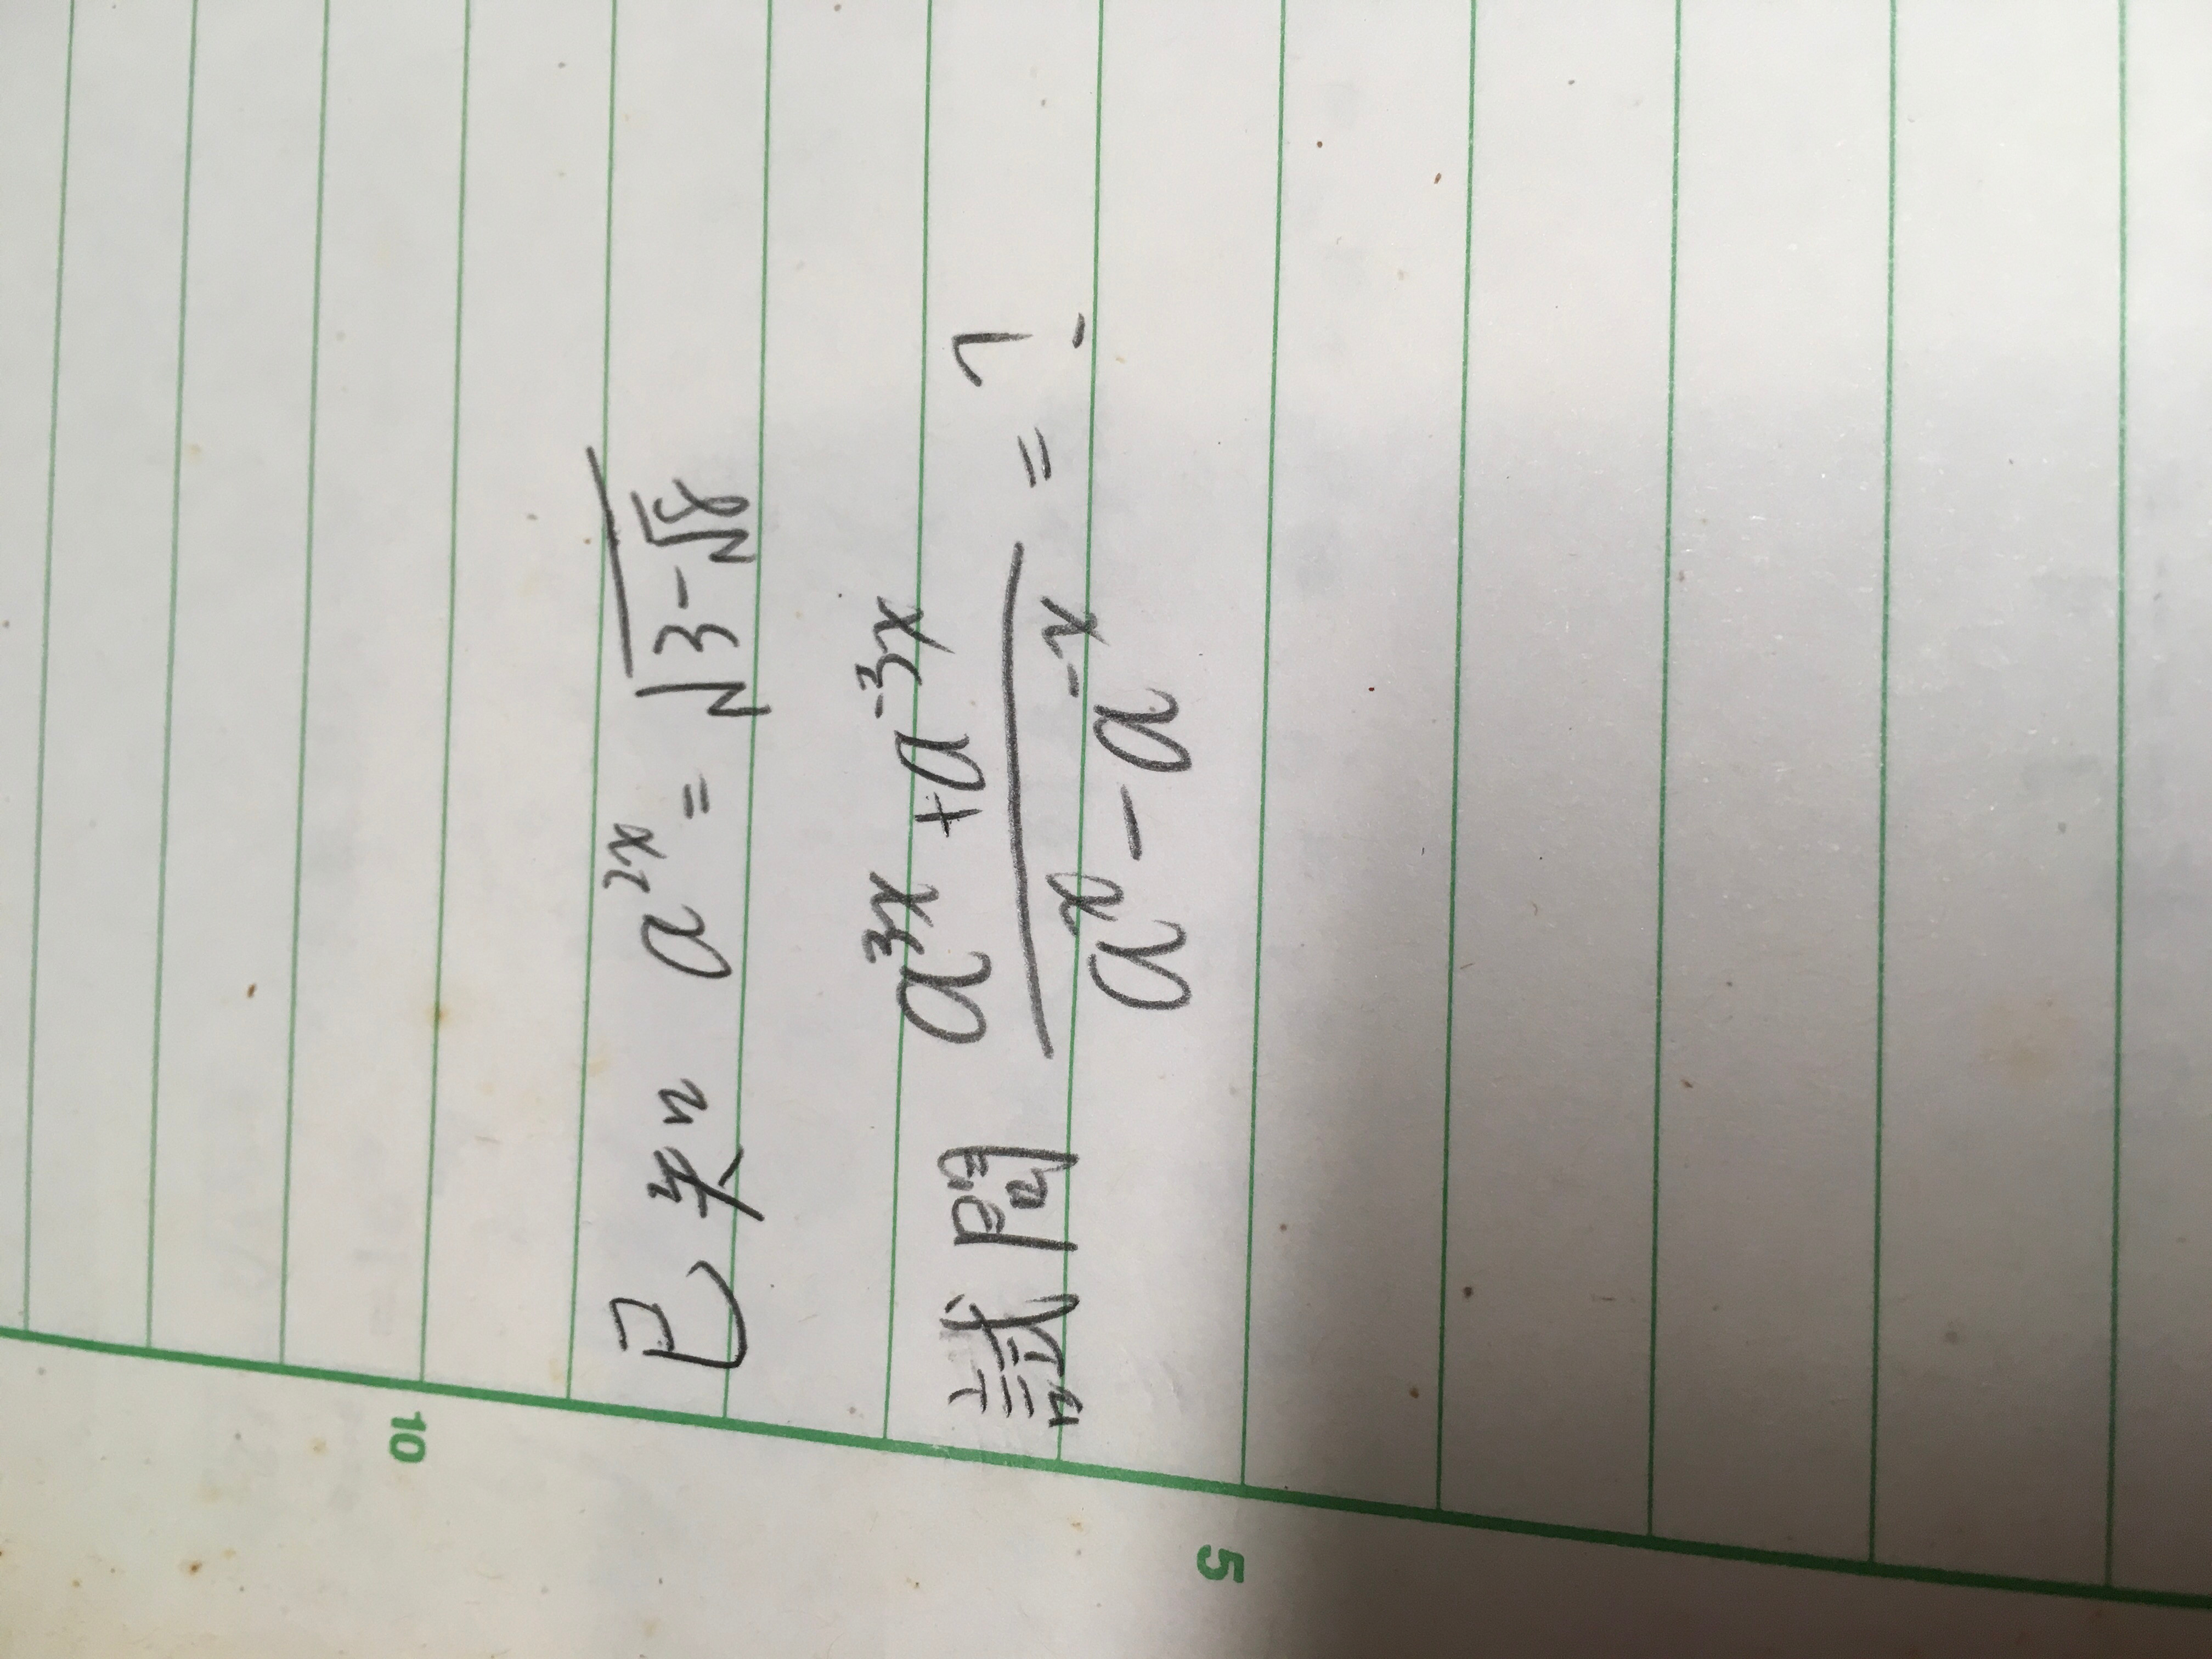 已知 a^{2x} = \sqrt{3-\sqrt{8}}
試問 \frac{a^{3x}+a^{-3x}}{a^{x}-a^{-x}} = ?
10
5